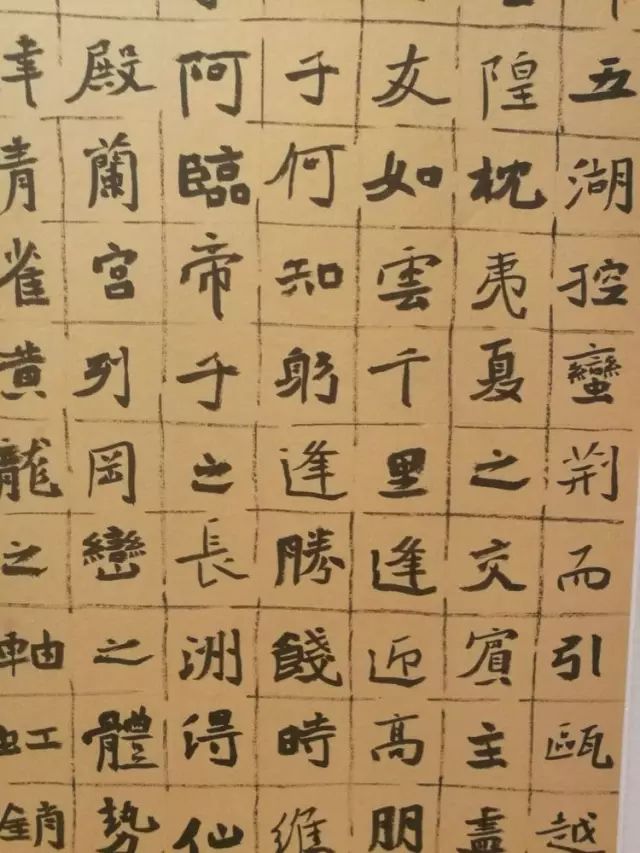 五湖控蠻荊而引甌越
隍枕夷夏之交賓主盡
友如雲千里逢迎高朋
子何知躬逢勝餞時維
阿臨帝子之長洲得仙
殿蘭宮列岡巒之體勢
津青雀黃龍之軸虹銷